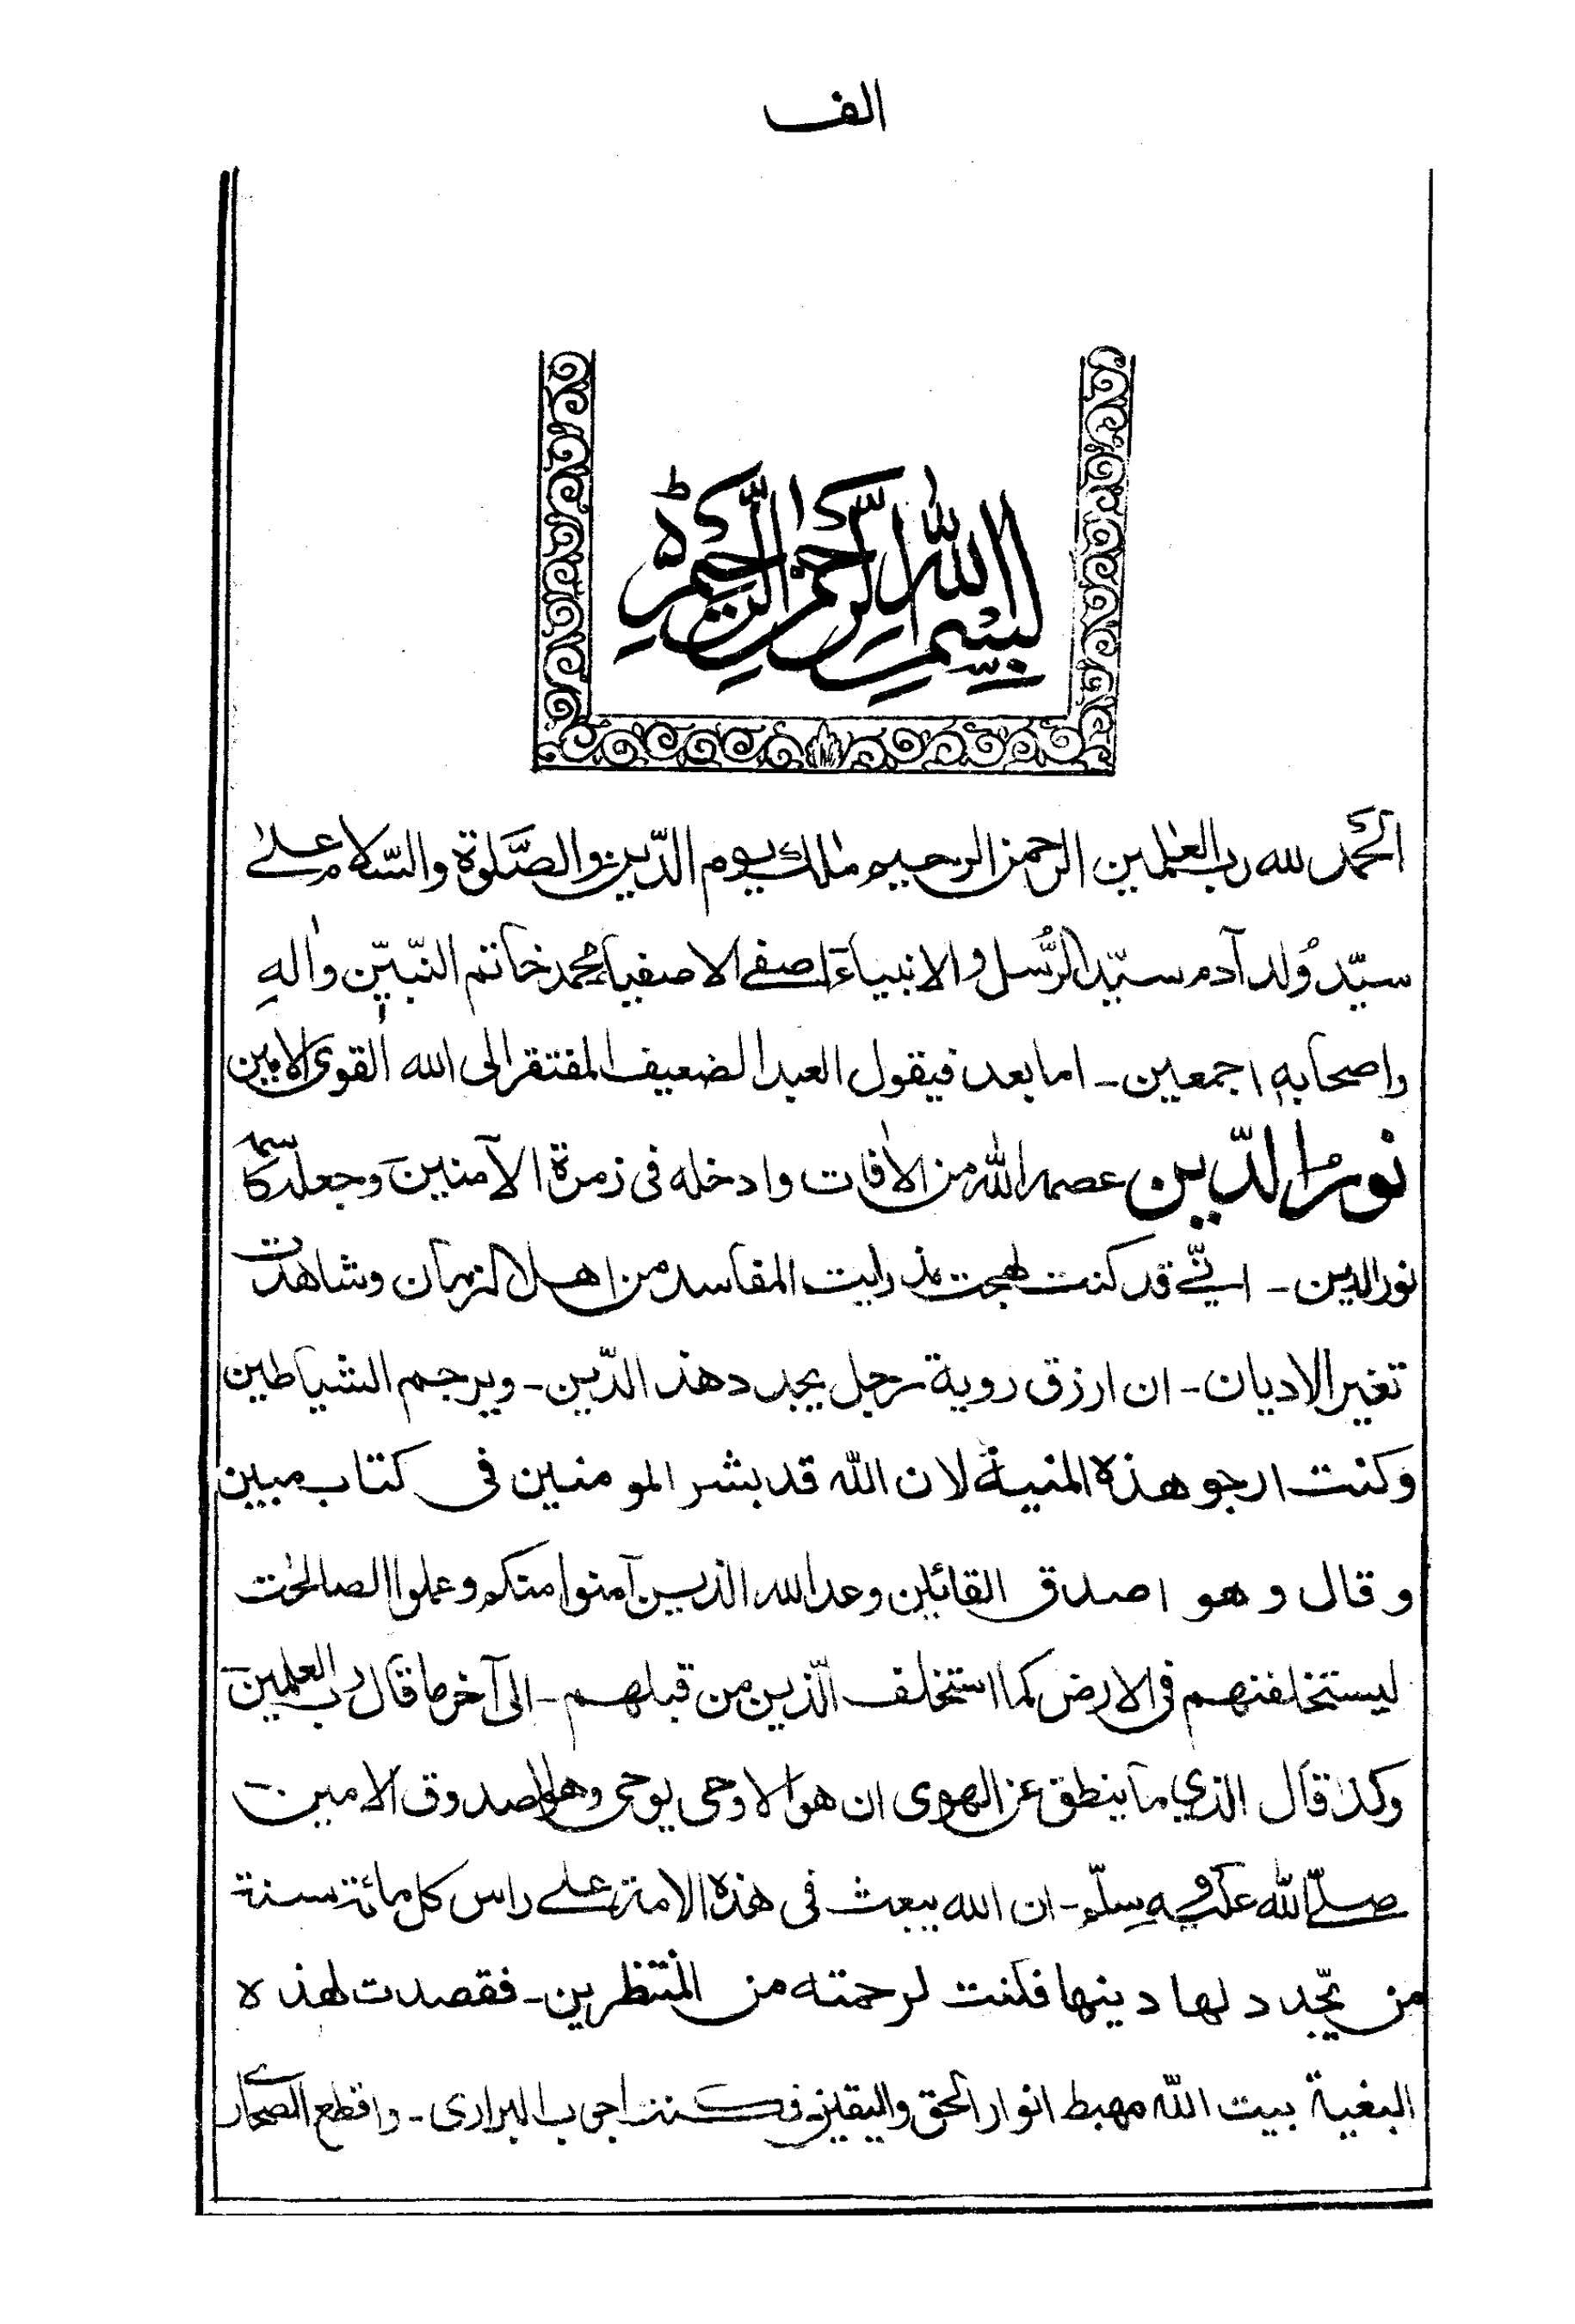 الف
بِسْمِ اللّٰهِ الرَّحْمٰنِ الرَّحِيْمِ
اَلحَمد لله رب العٰلمين الرحمن الرحيم مٰلك يوم الدّين والصَّلوٰة والسّلام علىٰ
سيّد وُلد آدم سيّد الرُّسل والانبياء اصفى الاصفياء محمد خاتم النّبيّن واٰلهِ
واصحابهٖ اجمعين ـ اما بعد فيقول العبد الضعيف المفتقر الى الله القوى الامين
نور الدّين عصمه الله من الاٰفات وادخله فى زمرة الآمنين وجعله كاسمه
نور الدين ـ انّى قد كنت لهجت مذ رايت المفاسد من اهل الزمان وشاهدت
تغير الاديان ـ ان ارزق روية رجل يجدد هذ الدّين ـ ويرجم الشياطين
وكنت ارجو هذه المنية لان الله قد بشر المومنين فى كتاب مبين
وقال وهو اصدق القائلين وعد الله الذين آمنوا منكم وعملوا الصالحٰت
ليستخلفنهم فى الارض كما استخلف الّذين من قبلهم ـ الى آخر ما قال رب العٰلمين
وكذ قال الذي ما ينطق عن الهوى ان هو الا وحى يوحى وهو الصدوق الامين
صلّى الله عليه وسلّم ـ ان الله يبعث فى هذه الامة على راس كل مائة سنة
من يّجدد لها دينها فكنت لرحمته من المنتظرين ـ فقصدت لهذه
البغية بيت الله مهبط انوار الحق واليقين فكنت اجوب البرارى ـ واقطع الصحارى